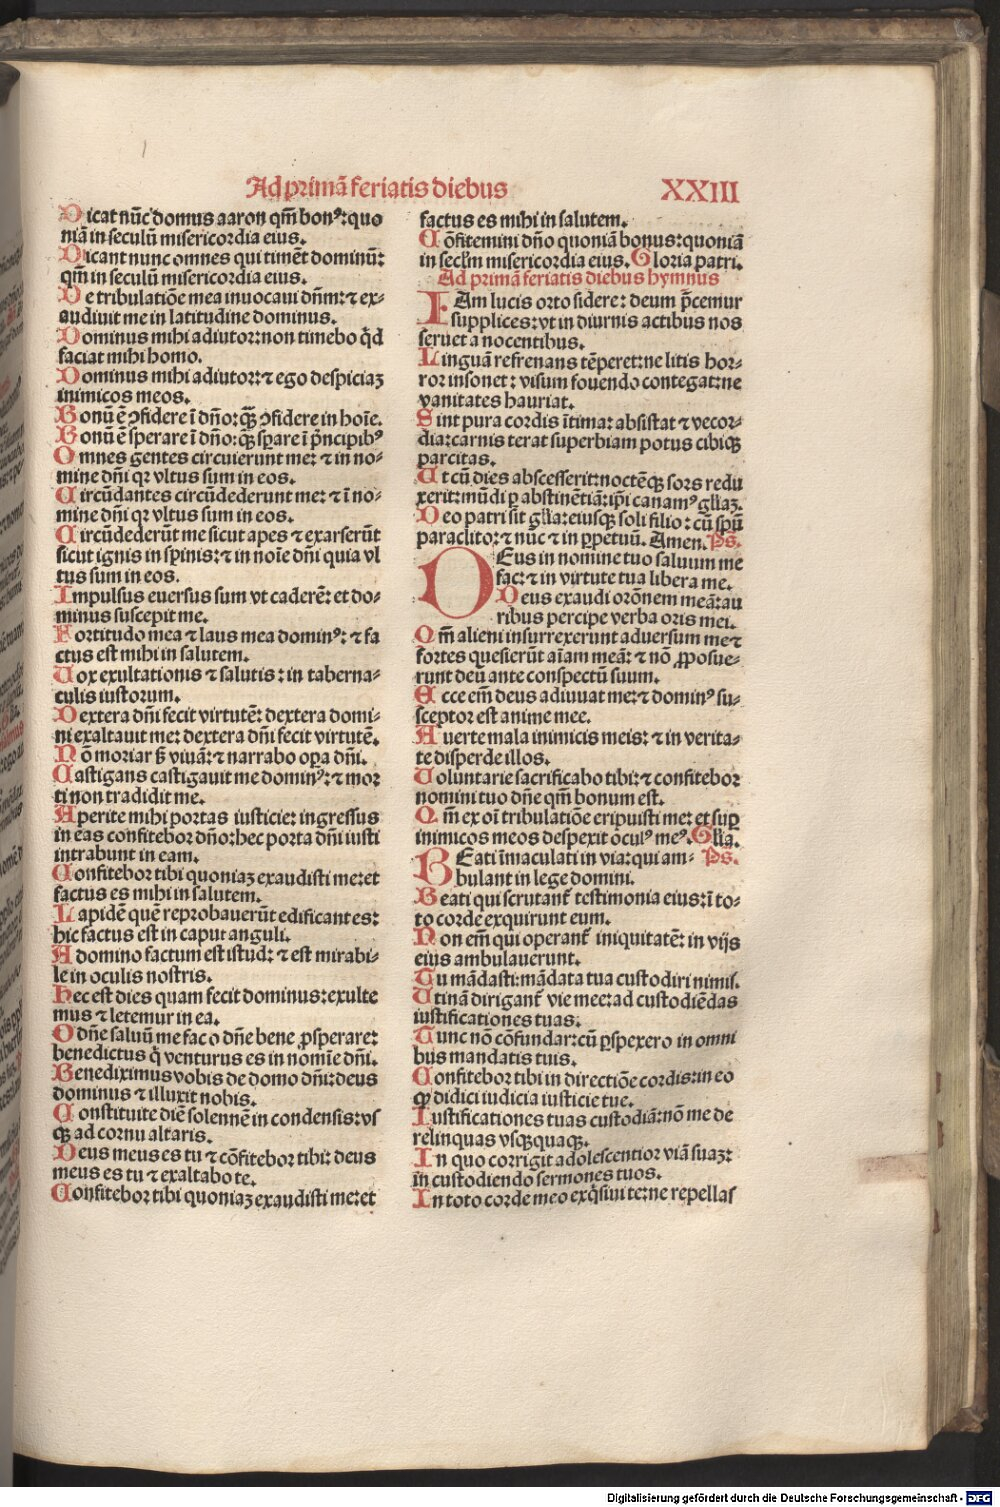 Ad primā feriatis diebus
XXIII
Dicat nūc domus aaron qm̄ bonꝰ: quo
niā in seculū misericordia eius.
Dicant nunc omnes qui timēt dominū:
qm̄ in seculū misericordia eius.
De tribulatiōe mea inuocaui dn̄m: ⁊ ex⸗
audiuit me in latitudine dominus.
Dominus mihi adiutor: non timebo qd̄
faciat mihi homo.
Dominus mihi adiutor: ⁊ ego despiciaꝫ
inimicos meos.
Bonū ē ꝯfidere ī dn̄o: qᷓꝫ ꝯfidere in hoīe.
Bonū ē sperare ī dn̄o: qᷓꝫ spare ī pͥncipibꝰ
Omnes gentes circuierunt me: ⁊ in no⸗
mine dn̄i qr vltus sum in eos.
Circūdantes circūdederunt me: ⁊ ī no⸗
mine dn̄i qr vltus sum in eos.
Circūdederūt me sicut apes ⁊ exarserūt
sicut ignis in spinis: ⁊ in noīe dn̄i quia vl
tus sum in eos.
Impulsus euersus sum vt caderē: et do⸗
minus suscepit me.
Fortitudo mea ⁊ laus mea dominꝰ: ⁊ fa
ctus est mihi in salutem.
Vox exultationis ⁊ salutis: in taberna⸗
culis iustorum.
Dextera dn̄i fecit virtutē: dextera domi⸗
ni exaltauit me: dextera dn̄i fecit virtutē.
Nō moriar sꝫ viuā: ⁊ narrabo oꝑa dn̄i.
Castigans castigauit me dominꝰ: ⁊ mor
ti non tradidit me.
Aperite mihi portas iusticie: ingressus
in eas confitebor dn̄o: hec porta dn̄i iusti
intrabunt in eam.
Confitebor tibi quoniaꝫ exaudisti me: et
factus es mihi in salutem.
Lapidē quē reprobauerūt edificantes:
hic factus est in caput anguli.
A domino factum est istud: ⁊ est mirabi⸗
le in oculis nostris.
Hec est dies quam fecit dominus: exulte
mus ⁊ letemur in ea.
O dn̄e saluū me fac o dn̄e bene ꝓsperare:
benedictus q̇ venturus es in nomīe dn̄i.
Benediximus vobis de domo dn̄i: deus
dominus ⁊ illuxit nobis.
Constituite diē solennē in condensis: vs
qꝫ ad cornu altaris.
Deus meus es tu ⁊ cōfitebor tibi: deus
meus es tu ⁊ exaltabo te.
Confitebor tibi quoniaꝫ exaudisti me: et
factus es mihi in salutem.
Cōfitemini dn̄o quoniā bonus: quoniā
in seclm̄ misericordia eius. Gloria patri.
Ad primā feriatis diebus hymnus
IAm lucis orto sidere: deum p̄cemur
supplices: vt in diurnis actibus nos
seruet a nocentibus.
Linguā refrenans tēperet: ne litis hor⸗
ror insonet: visum fouendo contegat: ne
vanitates hauriat.
Sint pura cordis ītima: absistat ⁊ vecor⸗
dia: carnis terat superbiam potus cibiqꝫ
parcitas.
Ut cū dies abscesserit: noctēqꝫ sors redu
xerit: mūdi ꝑ abstinētiā: ip̄i canamꝰ gl̄iaꝫ.
Deo patri sit gl̄ia: eiusqꝫ soli filio: cū spū
paraclito: ⁊ nūc ⁊ in ꝑpetuū. Amen. Ps.
DEus in nomine tuo saluum me
fac: ⁊ in virtute tua libera me.
Deus exaudi orōnem meā: au
ribus percipe verba oris mei.
Qm̄ alieni insurrexerunt aduersum me ⁊
fortes quesierūt aīam meā: ⁊ nō ꝓposue⸗
runt deū ante conspectū suum.
Ecce em̄ deus adiuuat me: ⁊ dominꝰ su⸗
sceptor est anime mee.
Auerte mala inimicis meis: ⁊ in verita⸗
te disperde illos.
Voluntarie sacrificabo tibi: ⁊ confitebor
nomini tuo dn̄e qm̄ bonum est.
Qm̄ ex oī tribulatiōe eripuisti me: et suꝑ
inimicos meos despexit oculꝰ meꝰ. Gl̄ia.
BEati īmaculati in via: qui am⸗ Ps.
bulant in lege domini.
Beati qui scrutant᷑ testimonia eius: ī to⸗
to corde exquirunt eum.
Non em̄ qui operant᷑ iniquitatē: in vijs
eius ambulauerunt.
Tu mādasti: mādata tua custodiri nimis.
Utinā dirigant᷑ vie mee: ad custodiēdas
iustificationes tuas.
Tunc nō cōfundar: cū ꝑspexero in omni
bus mandatis tuis.
Confitebor tibi in directiōe cordis: in eo
ꝙ didici iudicia iusticie tue.
Iustificationes tuas custodiā: nō me de
relinquas vsqꝫquaqꝫ.
In quo corrigit adolescentior viā suaꝫ:
in custodiendo sermones tuos.
In toto corde meo exq̇siui te: ne repellas
Digitalisierung gefördert durch die Deutsche Forschungsgemeinschaft - DFG